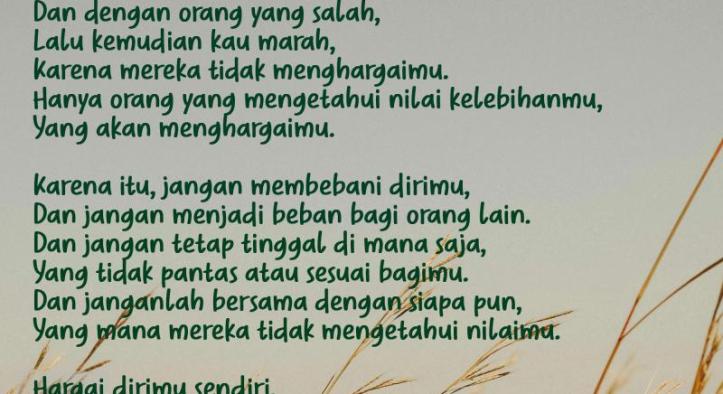 Dan dengan orang yang salah,
Lalu kemudian kau marah,
Karena mereka tidak menghargaimu.
Hanya orang yang mengetahui nilai kelebihanmu,
Yang akan menghargaimu.
Karena itu, jangan membebani dirimu,
Dan jangan menjadi beban bagi orang lain.
Dan jangan tetap tinggal di mana saja,
Yang tidak pantas atau sesuai bagimu.
Dan janganlah bersama dengan siapa pun,
Yang mana mereka tidak mengetahui nilaimu.
Hargai dirimu sendiri.